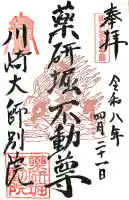 奉拝
令和八年
四月二十一日
薬研堀不動尊
川崎大師別院